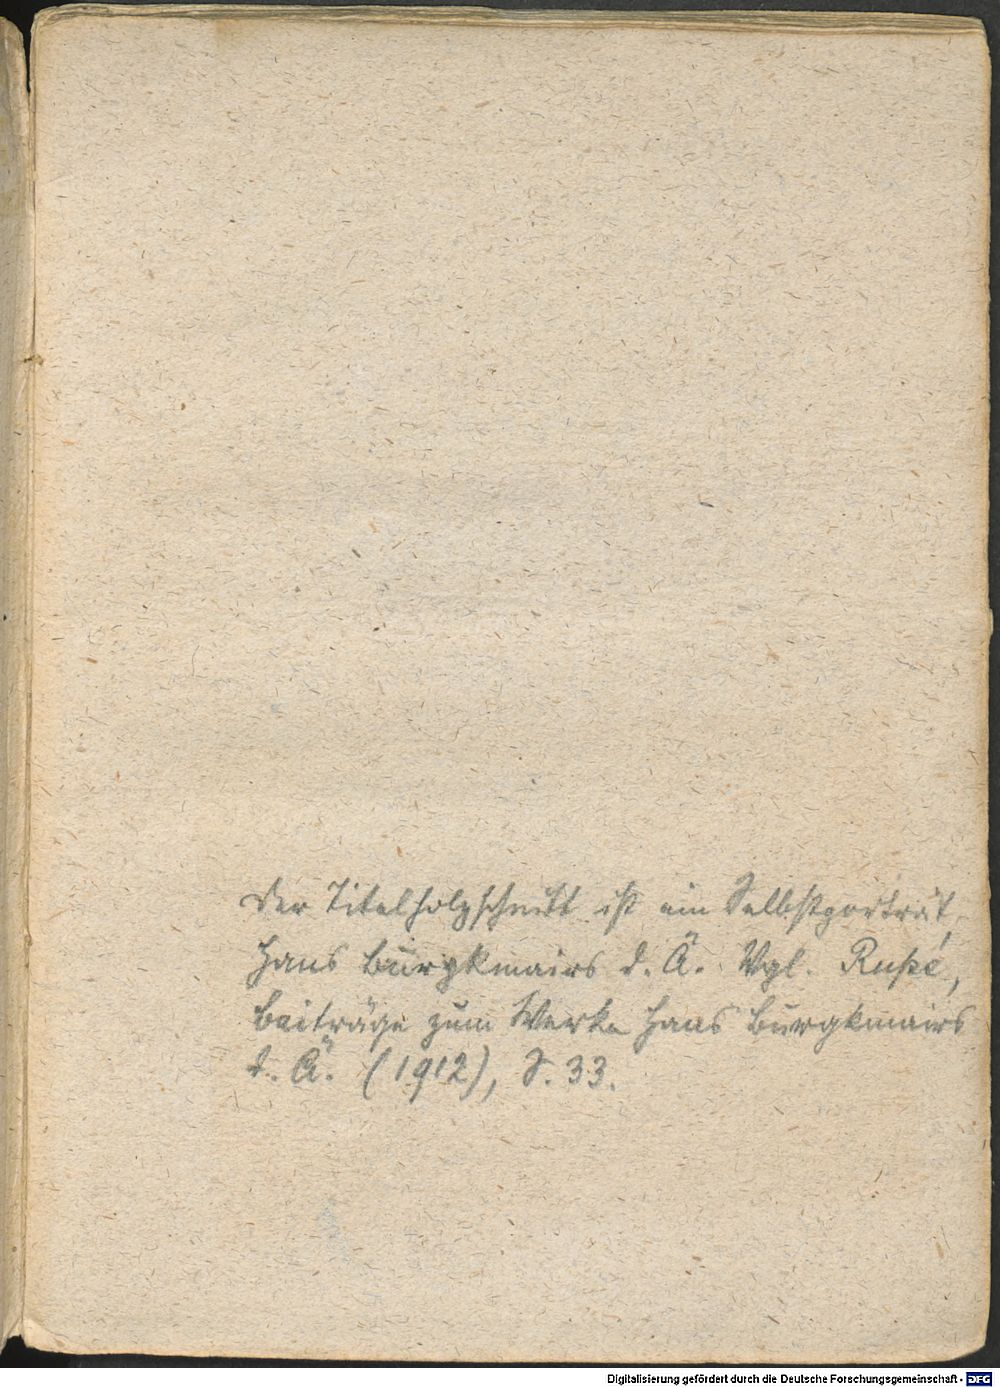 Der Titelholzschnitt ist ein Selbstporträt
Hans Burgkmairs d. Ä. Vgl. Rupé,
Beiträge zum Werke Hans Burgkmairs
d. Ä. (1912), S. 33.
Digitalisierung gefördert durch die Deutsche Forschungsgemeinschaft - DFG